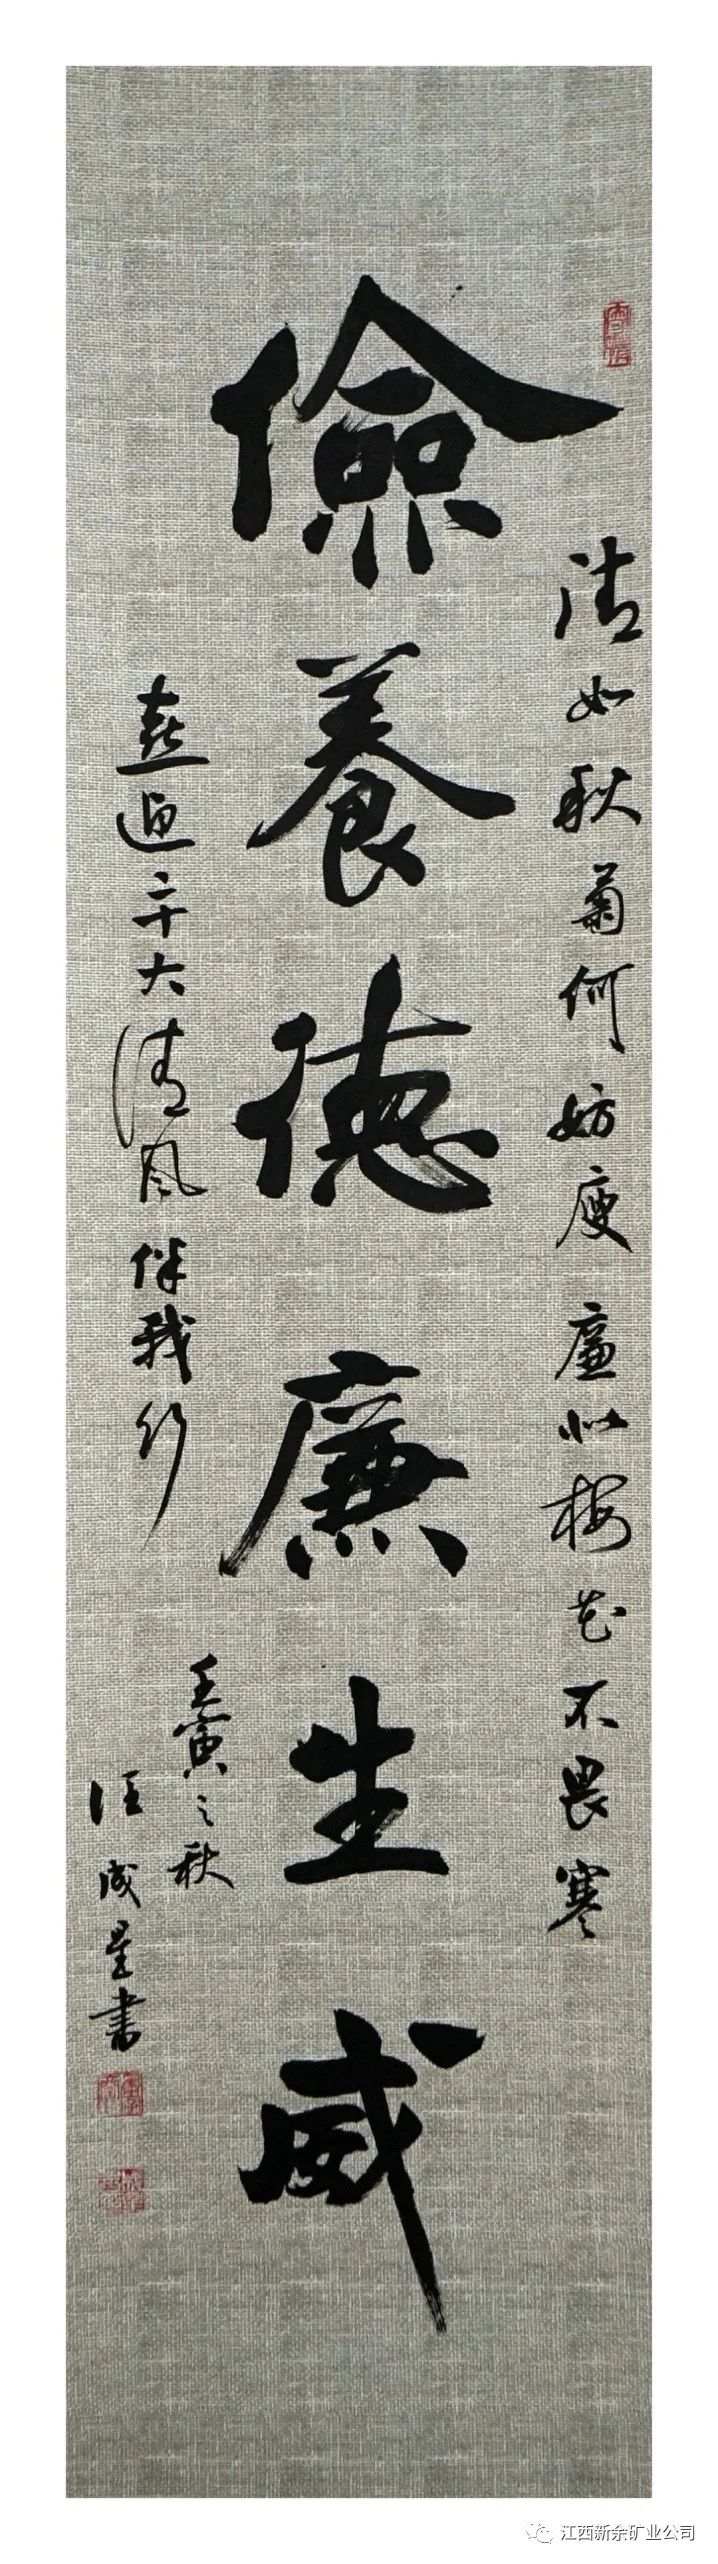 清如秋菊何妨瘦廉似梅花不畏寒
儉養德廉生威
喜迎二十大清風伴我行
壬寅之秋
汪成星書
江西新余矿业公司